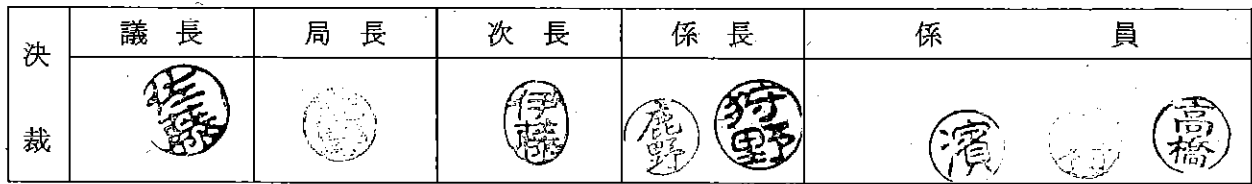 決裁
議長 局長 次長 係長 係員
佐藤 伊藤 鹿野 狩野 濱 高橋